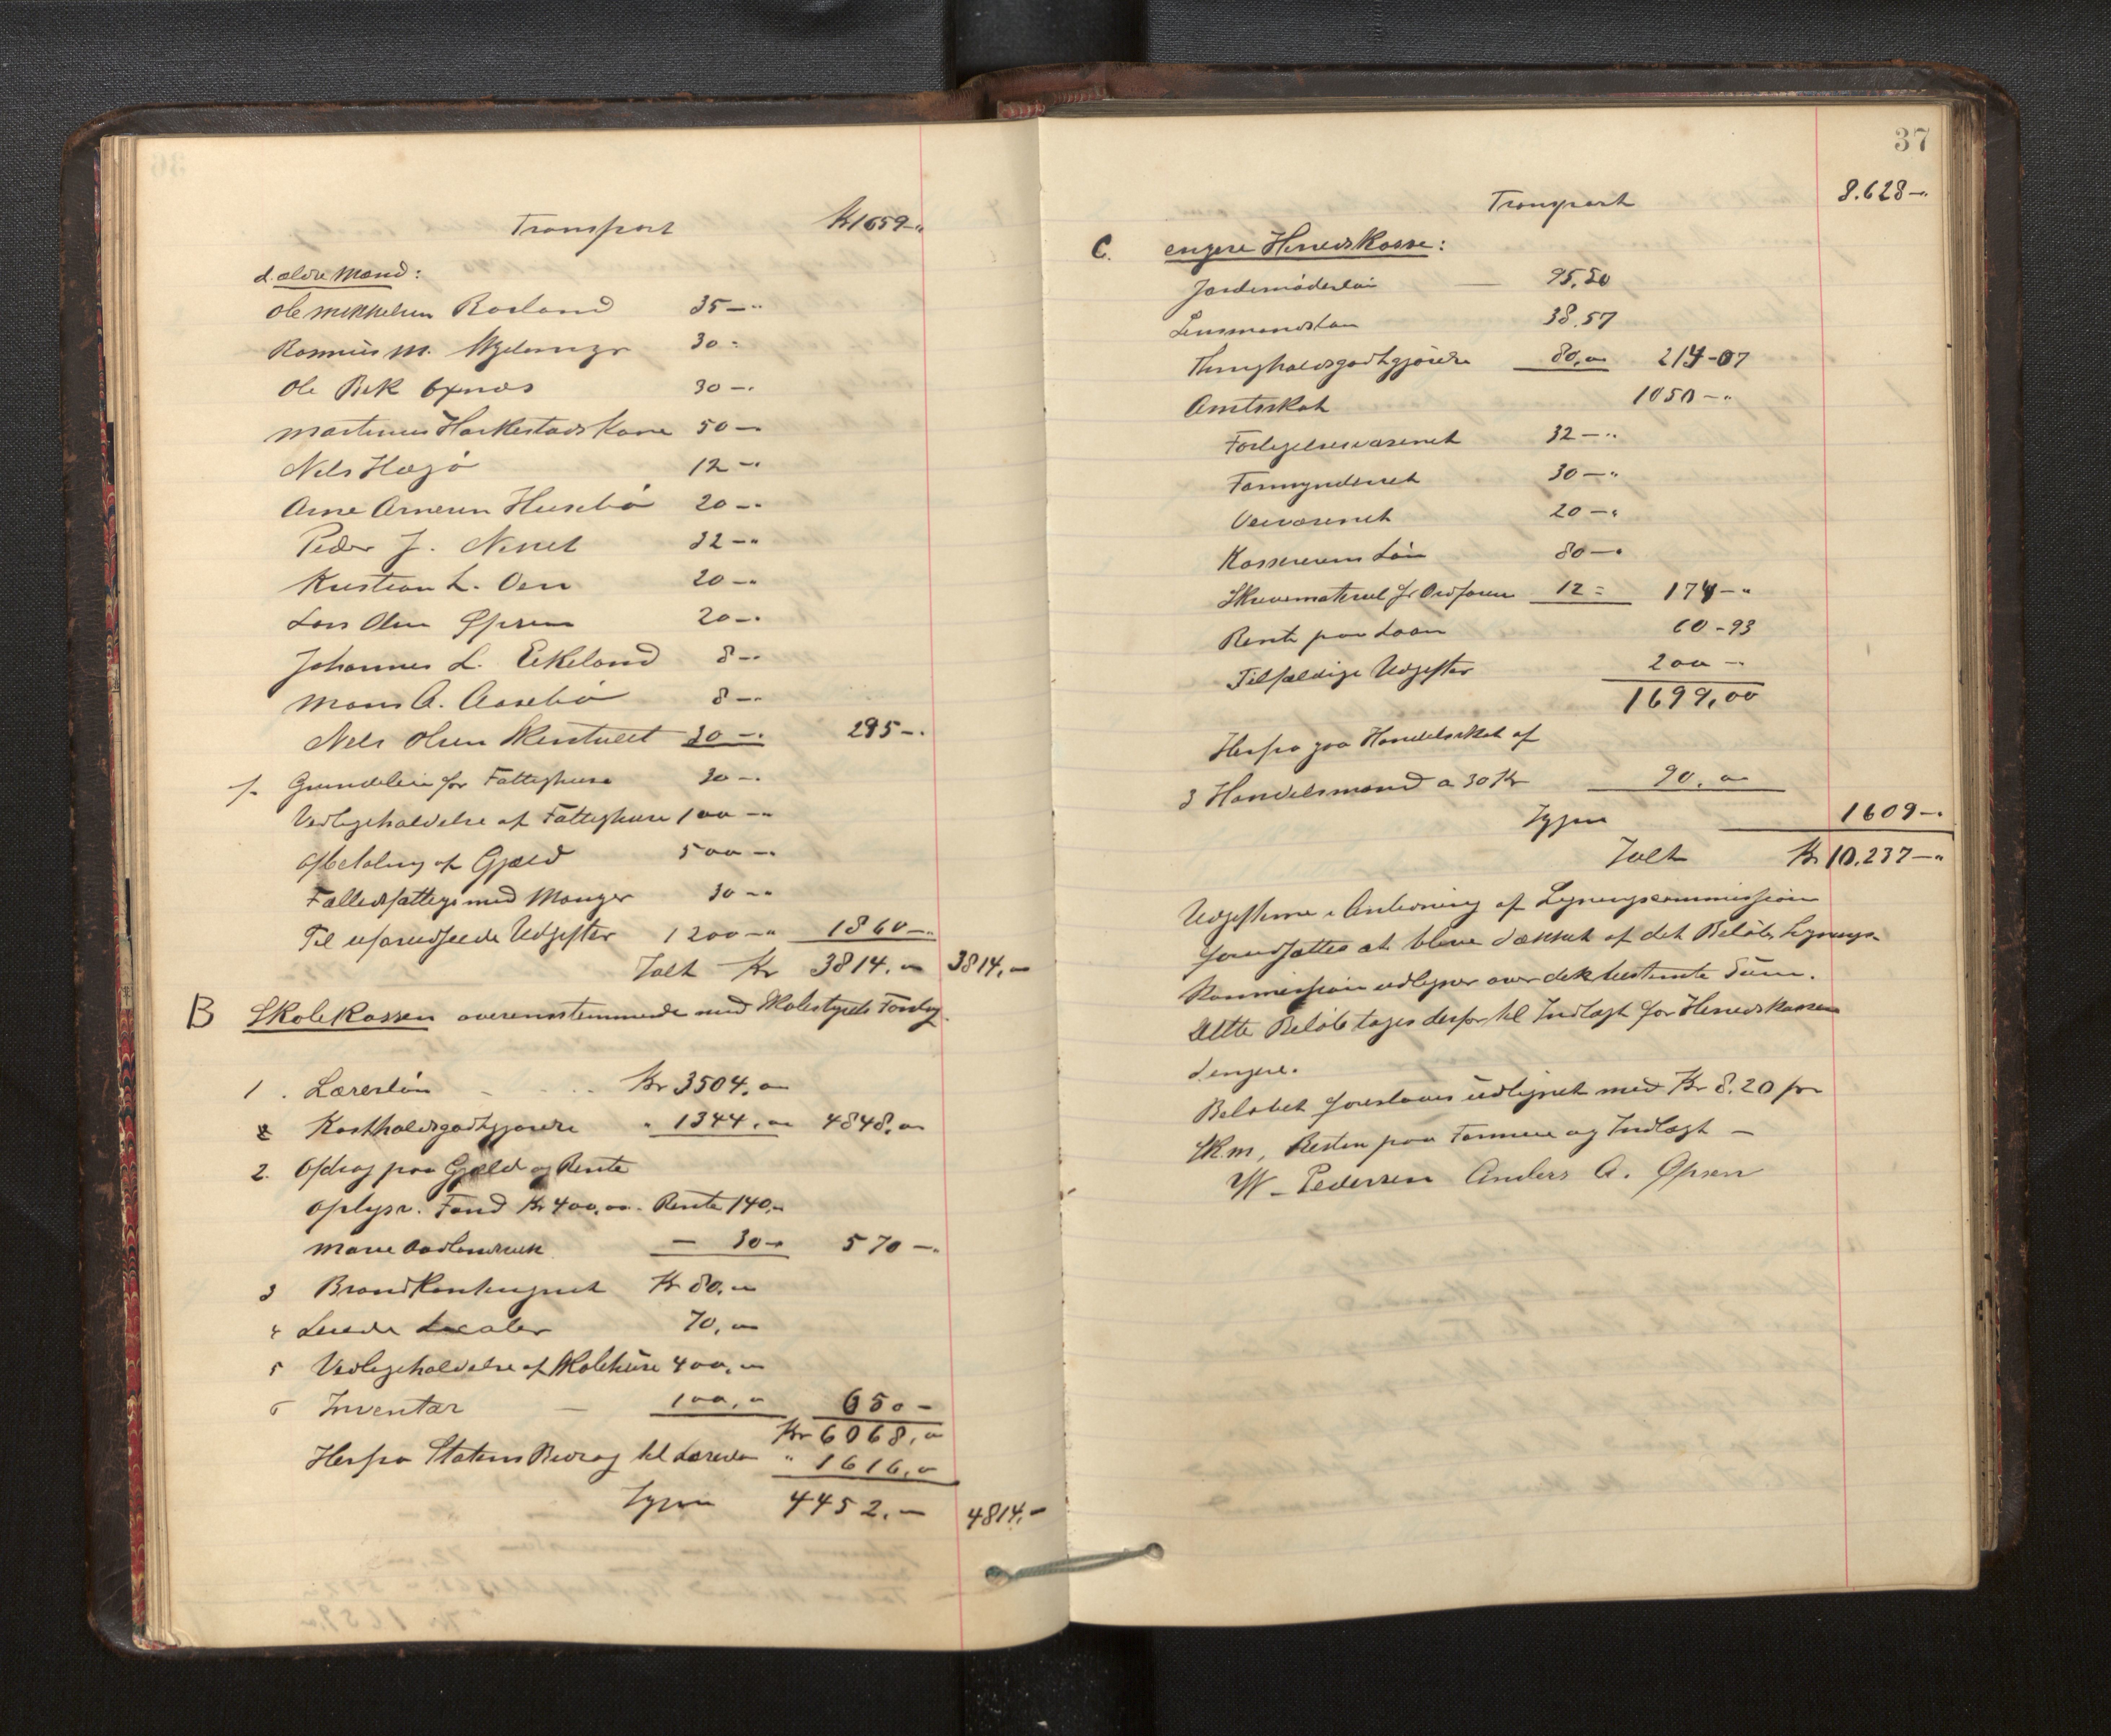 Transport Kr 1659 -"
d. ældre Mænd:
Ole Mikkelsen Rosland 35 -"
Rasmus M. 30 -
Ole Bek Oxnæs 30 -.
Martinus Harkestads Kone 50 -
Nels Hægø 12 -"
Arne Arnesen Husebø 20 -.
Peder J. 32 -"
Kristian L. Oen 20 -.
Lars Olsen Gjeren 20 -.
Johannes L. Eikeland 8 -.
Mons A. Aasebø 8 -.
Nels Olsen 30 -. 295 -.
f. Grundleie for Fattighuse 30 -.
Vedligeholdelse af Fattighuse 100 -"
Afbetaling af Gjæld 500 -.
Fælledsfattige med Manger 30 -"
Til uforudseede Udgifter 1200 -" 1860 -"
Ialt Kr 3814,00 3814,00
B Skolekassen overensstemmende med Skolestyrets Forslag.
1. Lærerløn - Kr 3504,00
Kostholdsgodtgjørelse " 1344,00 4848,00
2. Afdrag paa Gjæld og Rente
Oplysn. Fond Kr 400,00. Rente 140,"
Marie - 30 - 570 -.
3 Brandkontingent Kr 80,00
4 Leiede Localer 70,00
5 Vedligeholdelse af Skolehuse 400,00
6 Inventar - 100,00 650 -
Kr 6068,00
Herfra Statens Bidrag til Lærerløn " 1616,00
Igjen 4452,- 4814,-
37
Transport 8.628 -.
C. engere Herredskasse:
Jordemøderløn - 95,50
Lensmandsløn 38.57
Thingholdsgodtgjørelse 80,00 214-07
Amtsskat 1050 -"
Forligelsesvæsenet 32 -"
Formynderiet 30 -"
Veivæsenet 20 -"
Kassererens Løn 80 -.
Skrivemateriel for Ordføren 12 = 174 -"
Rente paa Laan 60-93
Tilfældige Udgifter 200 -.
1699,00
Herfra gaar Handelsskat af
3 Handelsmænd a 30 Kr 90,00
Igjen 1609 -.
Ialt Kr 10.237 -"
Udgifterne i Anledning af Ligningscommission
forudsættes at blive dækket af det Beløb Lignings-
Kommission udligner over det bestemte Sum.
Dette Beløb tages derfor til Indtægt for Herredskassen
d. engere.
Beløbet foreslaaes udlignet med Kr 8.20 pr
Sk.m, Resten paa Formue og Indtægt -
W. Pedersen Anders A. Gjeren